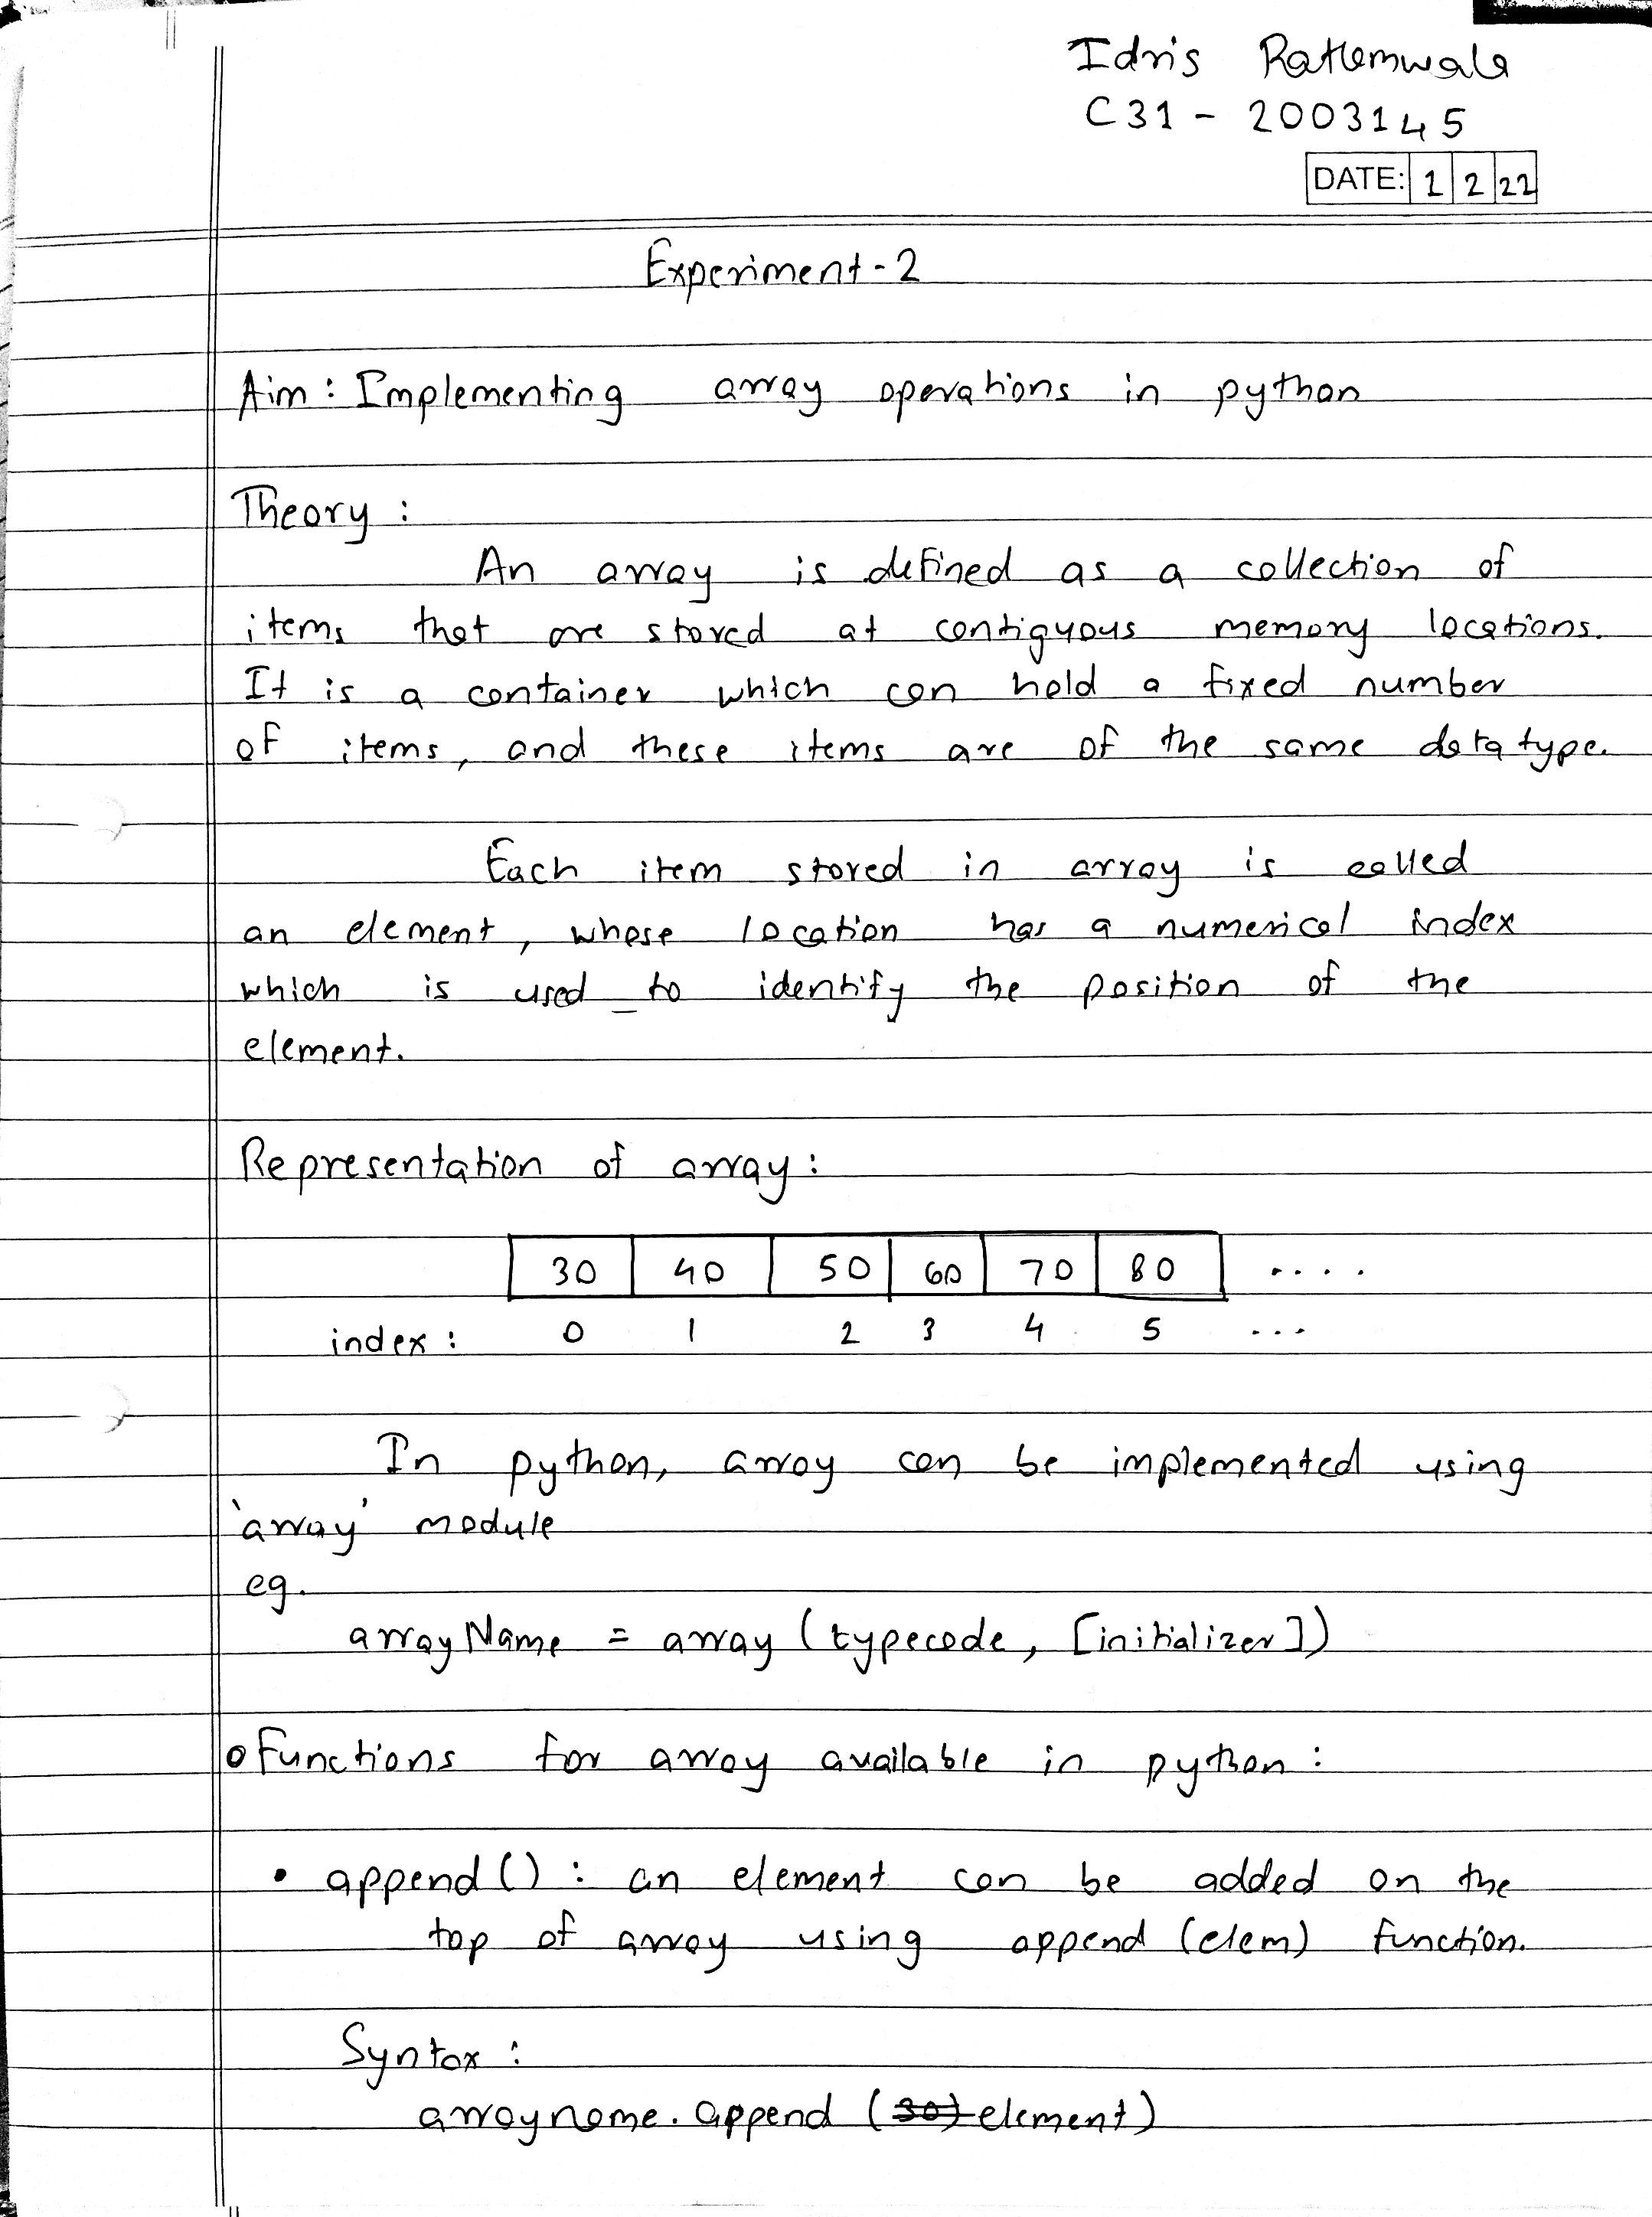 Idris Ratlamwala
C31 - 2003145
DATE: 1 2 22
Experiment-2
Aim: Implementing array operations in python
Theory:
An array is defined as a collection of
items that are stored at contiguous memory locations.
It is a container which can hold a fixed number
of items, and these items are of the same data type.
Each item stored in array is called
an element, whose location has a numerical index
which is used to identify the position of the
element.
Representation of array:
30 40 50 60 70 80 ....
index: 0 1 2 3 4 5 ...
In python, array can be implemented using
'array' module
eg.
arrayName = array (typecode, [initializer])
o Functions for array available in python:
• append(): an element can be added on the
top of array using append (elem) function.
Syntax:
arrayname.append (30) element)